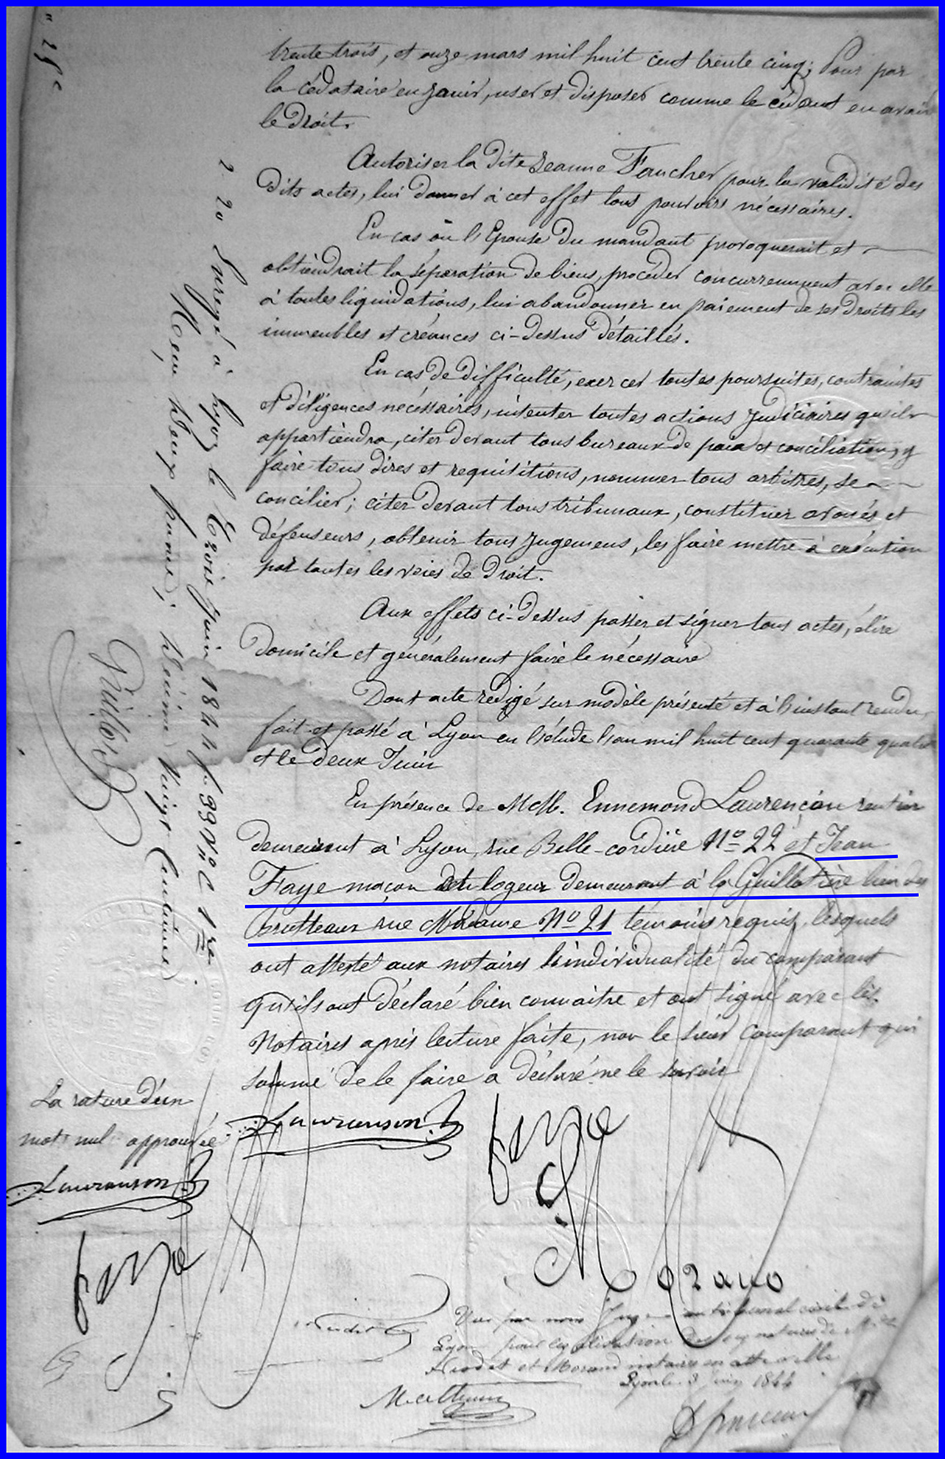 trente trois, et onze mars mil huit cent trente cinq; Pour par
la cédataire en jouir, user et disposer comme le cédant en avait
le droit.
Autoriser la dite Jeanne Faucher pour la validité des
dits actes, lui donner à cet effet tous pouvoirs nécessaires.
En cas où l'Epouse du mandant provoquerait et
obtiendrait la séparation de biens, procéder concurremment avec elle
à toutes liquidations, lui abandonner en paiement de ses droits les
immeubles et créances ci-dessus détaillés.
En cas de difficulté, exercer toutes poursuites, contraintes
et diligences nécessaires, intenter toutes actions judiciaires qu'il
appartiendra, citer devant tous bureaux de paix et conciliation, y
faire tous dires et requisitions, nommer tous arbitres, se
concilier; citer devant tous tribunaux, constituer avoués et
défenseurs, obtenir tous jugemens, les faire mettre à exécution
par toutes les voies de droit.
Aux effets ci-dessus passer et signer tous actes, élire
domicile et généralement faire le nécessaire
Dont acte rédigé sur modèle présenté et à l'instant rendu
fait et passé à Lyon en l'étude l'an mil huit cent quarante quatre
et le deux Juin
En présence de MM. Ennemond Laurençon rentier
demeurant à Lyon, rue Belle-cordière No 22 et Jean
Faye maçon et logeur demeurant à la Guillotière lieu des
brotteaux rue Madame No 21 témoins requis, lesquels
ont attesté aux notaires l'individualité du comparant
qu'ils ont déclaré bien connaitre et ont signé avec les
Notaires après lecture faite, non le sieur comparant qui
sommé de le faire a déclaré ne le savoir
La rature d'un
mot nul approuvée
Lauranson
Lauranson
faye
faye
Morand
Vu par nous Juge au tribunal civil de
Lyon pour légalisation des signatures de Mes
et Morand notaires en cette ville
Lyon le 3 juin 1844
Enregé à Lyon le trois Juin 1844 fo 99 Vo C 1re
Reçu deux francs, décime vingt centimes